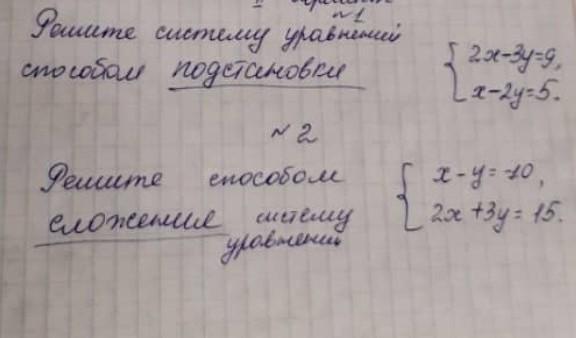 II вариант
№1
Решите систему уравнений
способом подстановки
2x-3y=9,
x-2y=5.
№2
Решите способом
сложения систему
уравнений
x-y=-10,
2x+3y=15.